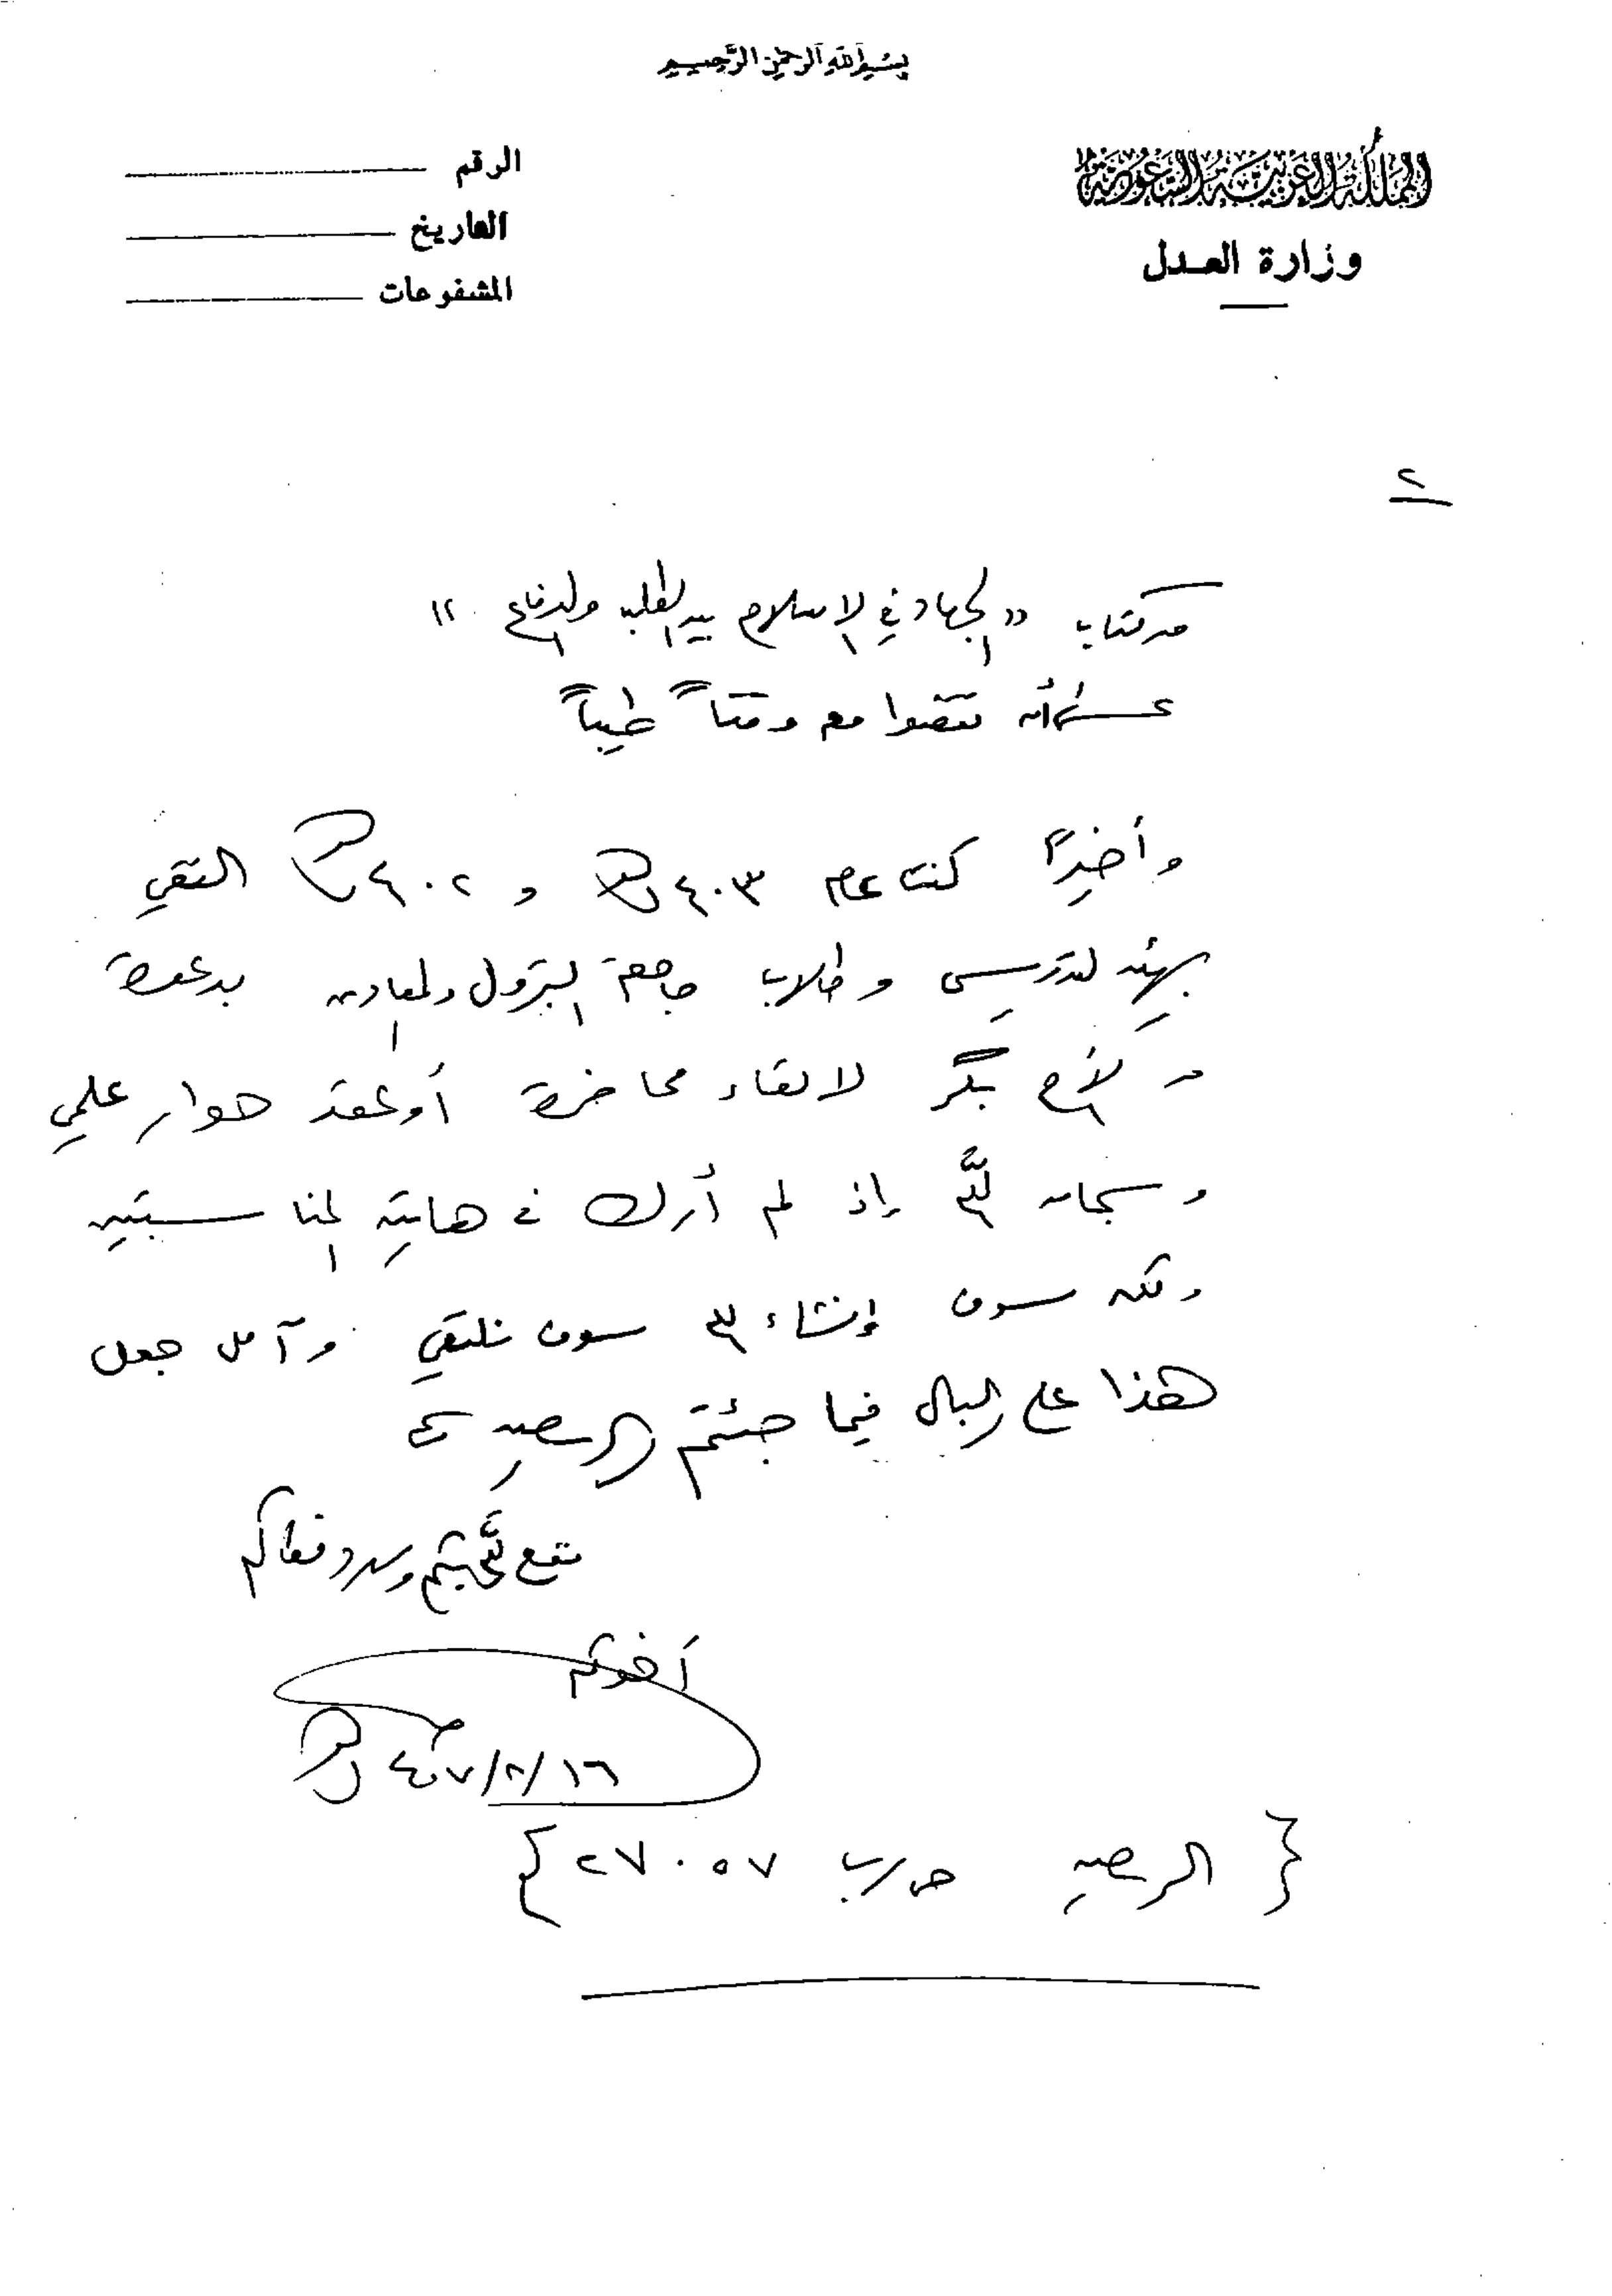 بسم الله الرحمن الرحيم
المملكة العربية السعودية
وزارة العدل
الرقم
التاريخ
المشفوعات
٢
من كتاب «الجهاد في الإسلام بين الطلب والدفاع»
عسى أن تقضوا معه وقتاً طيباً
وأخيراً كنت عام ٤٠٣ هـ و ٤٠٢ هـ التقي
بهيئة التدريس وطلاب جامعة البترول والمعادن بدعوة
من الأخ بكر لالقاء محاضرة أو عقد حوار علمي
وسبحان الله إذ لم أرك في هاتين المناسبتين
ولكن سوف إنشاء الله سوف نلتقي وآمل جعل
هذا على البال فيما جئتم الرياض
متع الله بكم وسدد خطاكم
أخوكم
١٦/٢/٤٠٧ هـ
{ الرياض ص.ب ٢٧٠٥٧ }